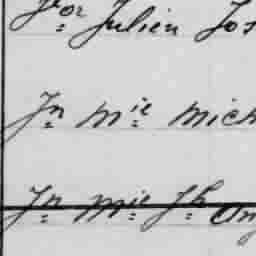 For Julien Jos
Jn Mie Mich
Jn Mie Jh Ang